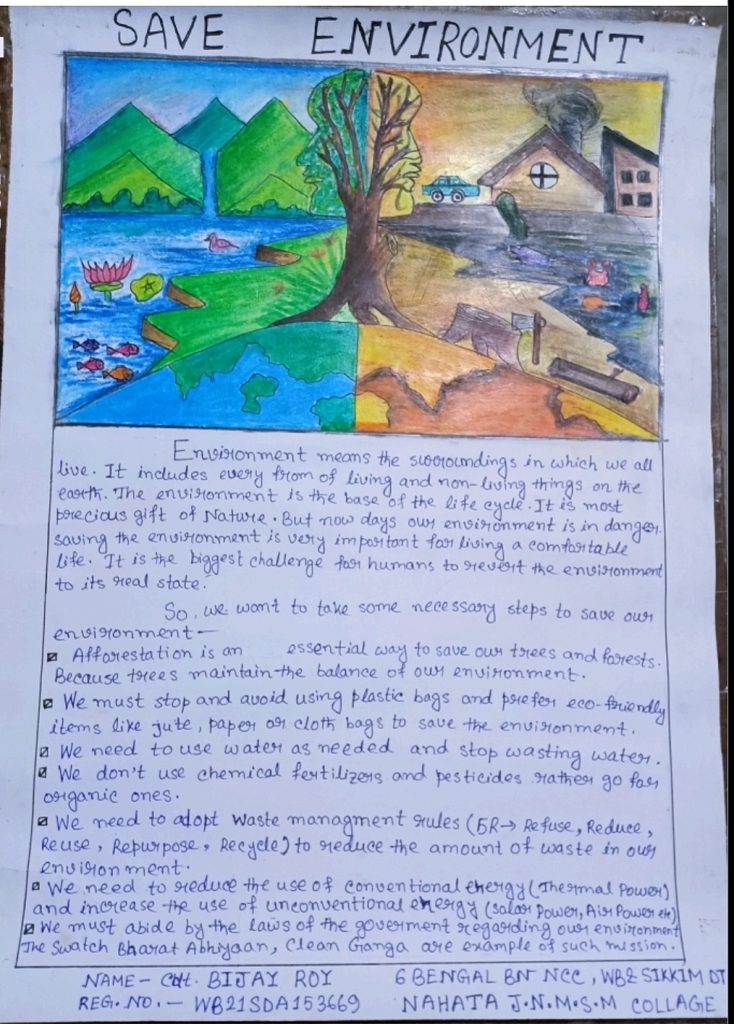 SAVE ENVIRONMENT
Environment means the suoroundings in which we all
live. It includes every from of living and non-living things on the
earth. The environment is the base of the life cycle. It is most
precious gift of Nature. But now days our environment is in danger.
saving the environment is very important for living a comfortable
life. It is the biggest challenge for humans to revert the environment
to its real state.
So, we want to take some necessary steps to save our
environment—
Afforestation is an essential way to save our trees and forests.
Because trees maintain the balance of our environment.
We must stop and avoid using plastic bags and prefer eco-friendly
items like jute, paper or cloth bags to save the environment.
We need to use water as needed and stop wasting water.
We don't use chemical fertilizers and pesticides rather go for
organic ones.
We need to adopt waste managment rules (5R→ Refuse, Reduce,
Reuse, Repurpose, Recycle) to reduce the amount of waste in our
environment.
We need to reduce the use of conventional energy (Thermal Power)
and increase the use of unconventional energy (Solar Power, Air Power etc)
We must abide by the laws of the goverment regarding our environment
The Swatch Bharat Abhiyaan, Clean Ganga are example of such mission.
NAME- Cdt. BIJAY ROY 6 BENGAL BN NCC, WB& SIKKIM DT
REG. NO. - WB21SDA153669 NAHATA J.N.M.S.M COLLAGE